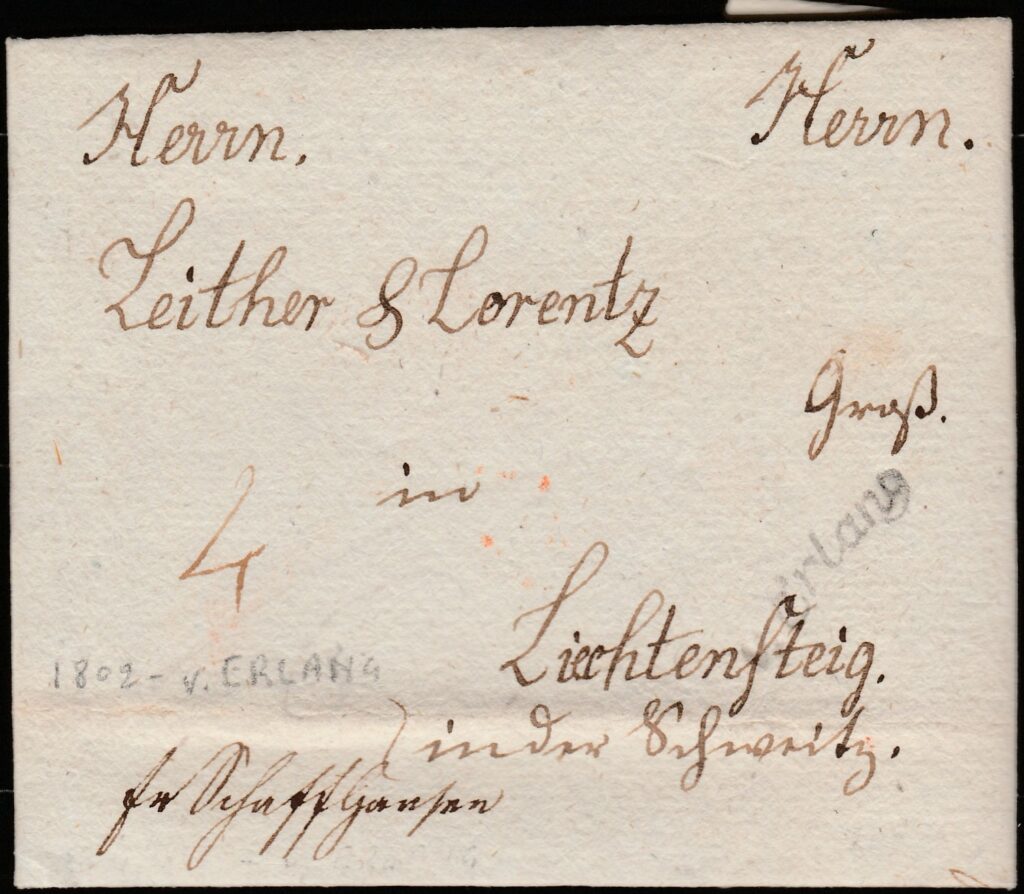 Herrn. Herrn.
Leither & Lorentz
Groß.
in
v. Erlang
4
Liechtensteig.
1802 - v. ERLANG
in der Schweitz.
fr Schaffhausen